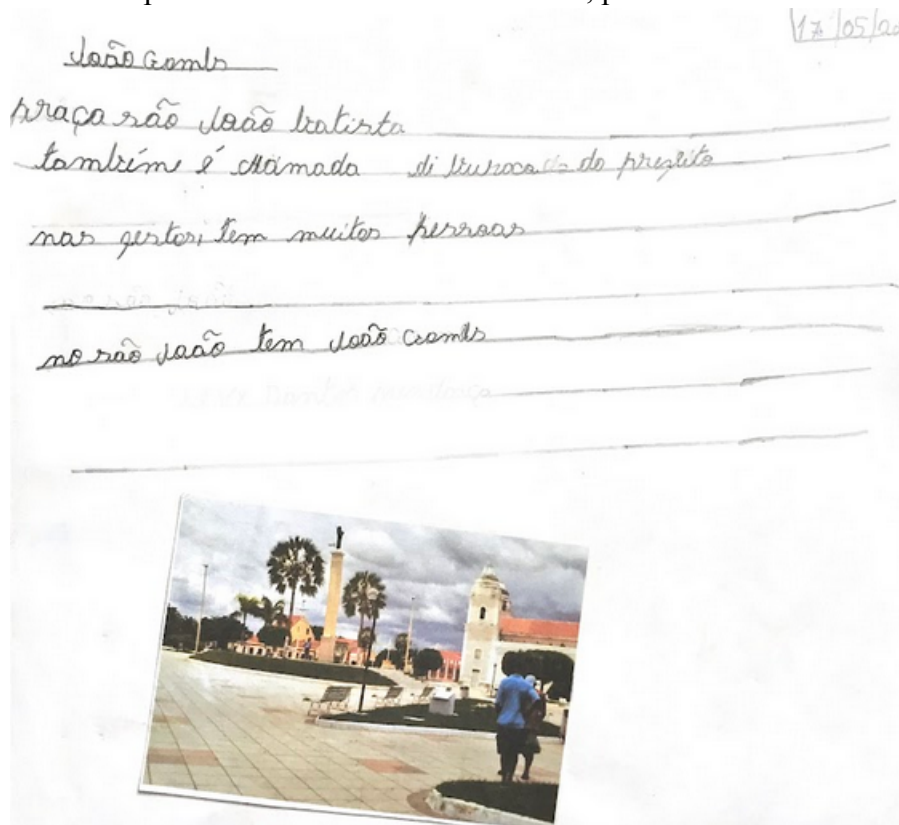 17/05/20
João Gomls
praça são João batista
também é chamada di do prefeito
nas gestos, tem muitos pessoas
no são João tem João Gomls